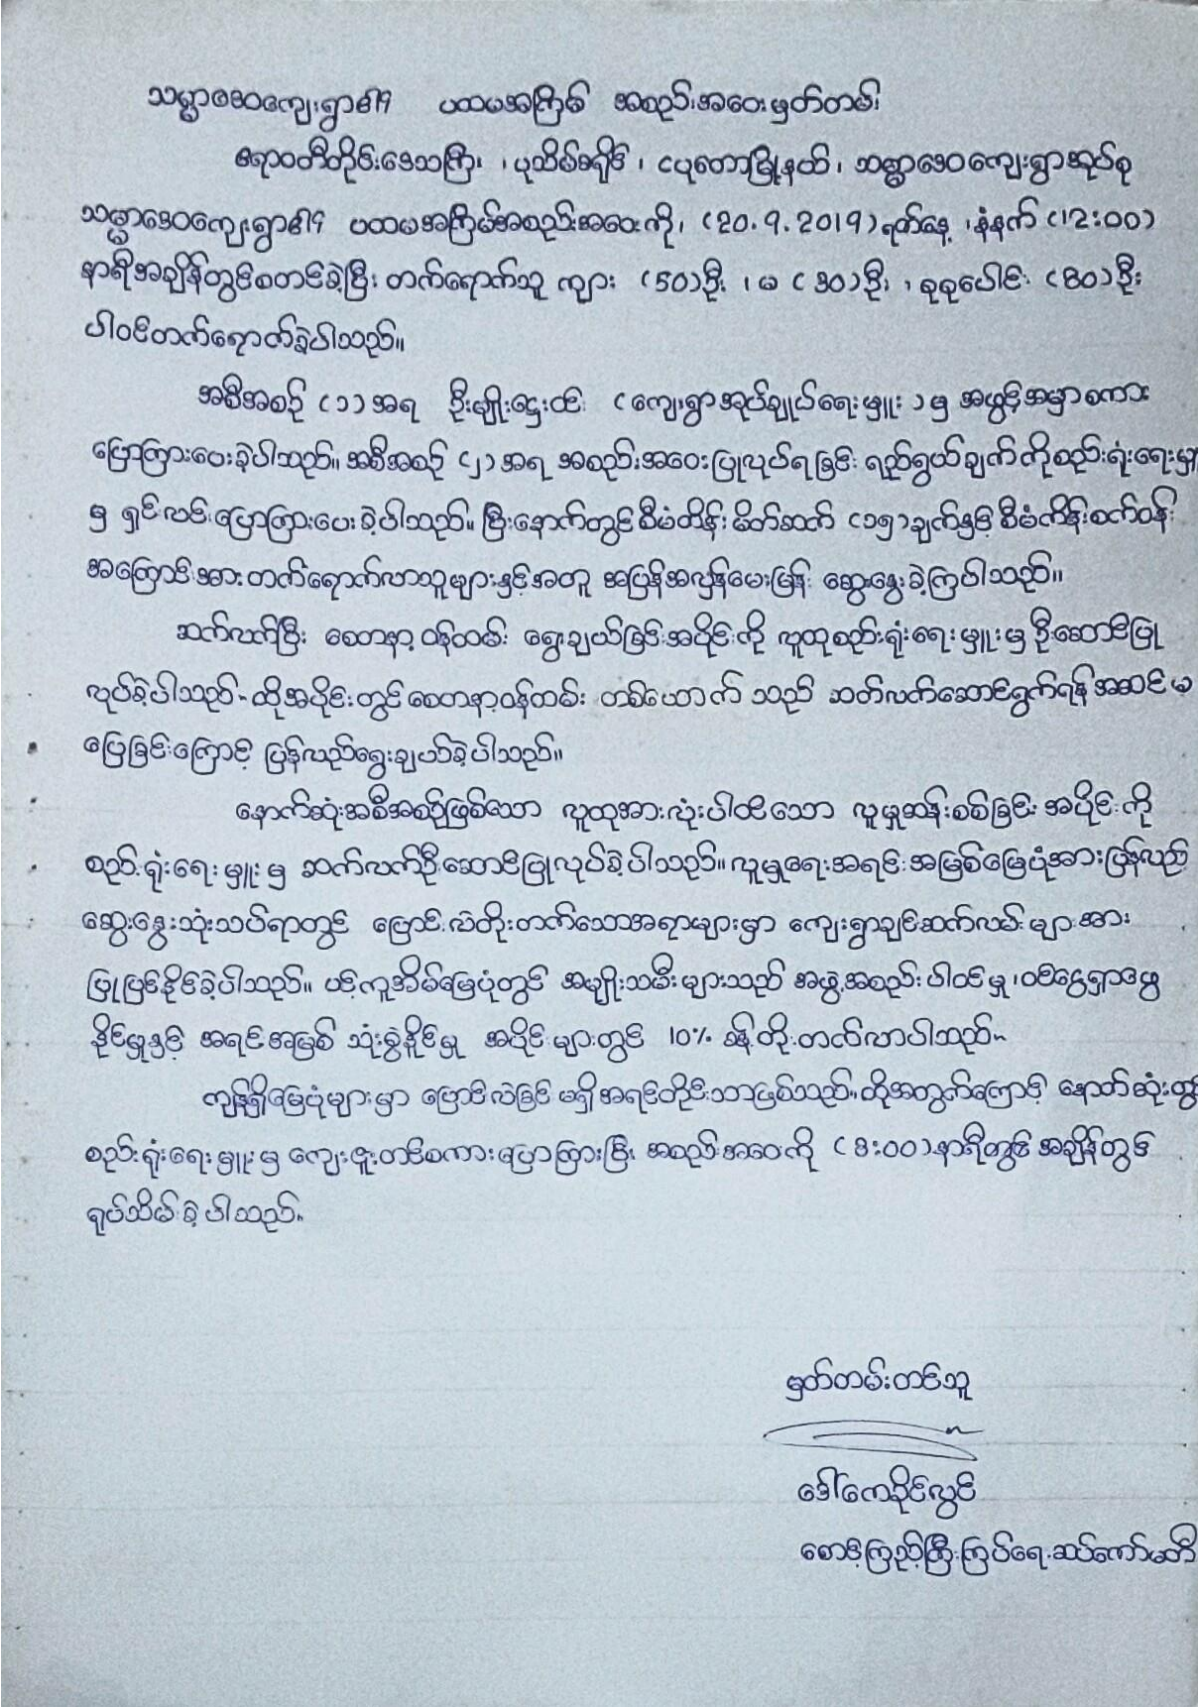 သမ္မာဒေဝကျေးရွာ၏ ပထမအကြိမ် အစည်းအဝေးမှတ်တမ်း
ဧရာဝတီတိုင်းဒေသကြီး ၊ ပုသိမ်ခရိုင် ၊ ငပုတောမြို့နယ် ၊ သမ္မာဒေဝကျေးရွာအုပ်စု
သမ္မာဒေဝကျေးရွာ၏ ပထမအကြိမ်အစည်းအဝေးကို၊ (20.9.2019)ရက်နေ့ ၊နံနက် (12:00)
နာရီအချိန်တွင်စတင်ခဲ့ပြီး တက်ရောက်သူ ကျား (50)ဦး ၊ မ (30)ဦး ၊ စုစုပေါင်း (80)ဦး
ပါဝင်တက်ရောက်ခဲ့ပါသည်။
အစီအစဉ် (၁)အရ ဦးမျိုးဌေးဝင်း (ကျေးရွာအုပ်ချုပ်ရေးမှူး)မှ အဖွင့်အမှာစကား
ပြောကြားပေးခဲ့ပါသည်။ အစီအစဉ် (၂)အရ အစည်းအဝေးပြုလုပ်ရခြင်း ရည်ရွယ်ချက်ကိုစည်းရုံးရေးမှူး
မှ ရှင်းလင်းပြောကြားပေးခဲ့ပါသည်။ ပြီးနောက်တွင်စီမံကိန်းမိတ်ဆက် (၁၅)ချက်နှင့် စီမံကိန်းစက်ဝန်း
အကြောင်းအားတက်ရောက်လာသူများနှင့်အတူ အပြန်အလှန်မေးမြန်း ဆွေးနွေးခဲ့ကြပါသည်။
ဆက်လက်ပြီး စေတနာ့ဝန်ထမ်း ရွေးချယ်ခြင်းအပိုင်းကို လူထုစည်းရုံးရေးမှူးမှ ဦးဆောင်ပြု
လုပ်ခဲ့ပါသည်။ ထိုအပိုင်းတွင်စေတနာ့ဝန်ထမ်း တစ်ယောက် သည် ဆက်လက်ဆောင်ရွက်ရန်အဆင်မ
ပြေခြင်းကြောင့် ပြန်လည်ရွေးချယ်ခဲ့ပါသည်။
နောက်ဆုံးအစီအစဉ်ဖြစ်သော လူထုအားလုံးပါဝင်သော လူမှုဆန်းစစ်ခြင်း အပိုင်းကို
စည်းရုံးရေးမှူးမှ ဆက်လက်ဦးဆောင်ပြုလုပ်ခဲ့ပါသည်။ လူမှုရေးအရင်းအမြစ်မြေပုံအားပြန်လည်
ဆွေးနွေးသုံးသပ်ရာတွင် ပြောင်းလဲတိုးတက်သောအရာများမှာ ကျေးရွာချင်းဆက်လမ်းများအား
ပြုပြင်နိုင်ခဲ့ပါသည်။ ပင့်ကူအိမ်မြေပုံတွင် အမျိုးသမီးများသည် အဖွဲ့အစည်းပါဝင်မှု ၊ဝင်ငွေရှာဖွေ
နိုင်မှုနှင့် အရင်းအမြစ် သုံးစွဲနိုင်မှု အပိုင်းများတွင် 10% ခန့်တိုးတက်လာပါသည်။
ကျန်ရှိမြေပုံများမှာ ပြောင်းလဲခြင်း မရှိအရင်တိုင်းသာဖြစ်သည်။ ထိုအတွက်ကြောင့် နောက်ဆုံးတွင်
စည်းရုံးရေးမှူးမှ ကျေးဇူးတင်စကားပြောကြားပြီး အစည်းအဝေးကို (3:00)နာရီတွင် အချိန်တွင်
ရုပ်သိမ်းခဲ့ပါသည်။
မှတ်တမ်းတင်သူ
ဒေါ်ကေခိုင်လွင်
စောင့်ကြည့်ကြီးကြပ်ရေးဆပ်ကော်မတီ